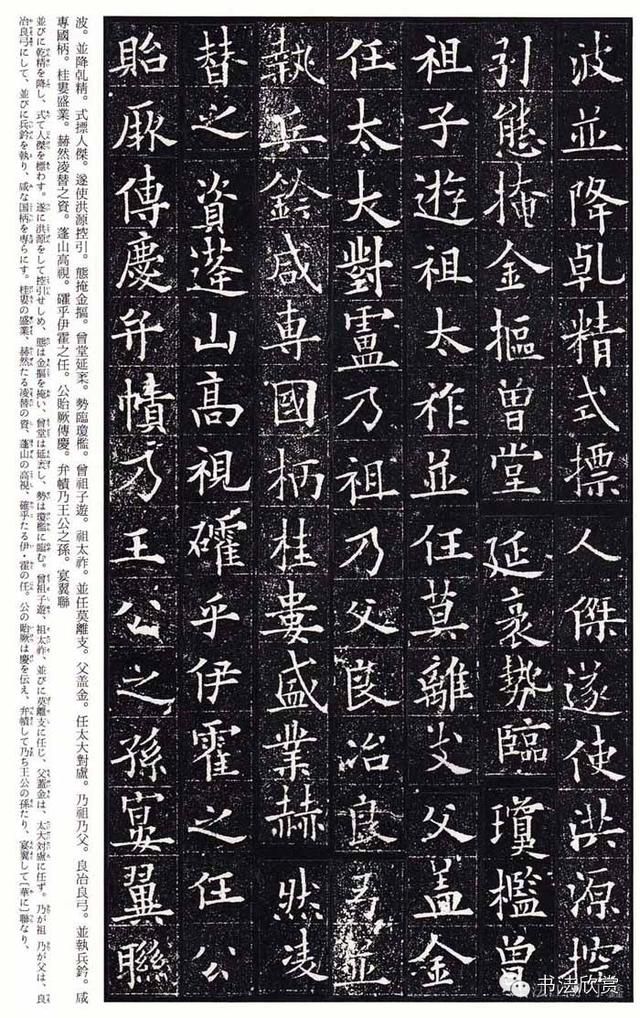 波並降乹精式摽人傑遂使洪源控
引態掩金摳曽堂延袤勢臨瓊檻曽
祖子遊祖太祚並任莫離支父盖金
任太大對盧乃祖乃父良冶良弓並
執兵鈐咸專國柄桂婁盛業赫然凌
替之資蓬山高視礭乎伊霍之任公
貽厥傳慶弁幘乃王公之孫宴翼聯
波。並降乹精。式摽人傑。遂使洪源控引。態掩金摳。曾堂延袤。勢臨瓊檻。曾祖子遊。祖太祚。並任莫離支。父盖金。任太大對盧。乃祖乃父。良冶良弓。並執兵鈐。咸
專國柄。桂婁盛業。赫然凌替之資。蓬山高視。礭乎伊霍之任。公貽厥傳慶。弁幘乃王公之孫。宴翼聯
並びに乾精を降し、式て人傑を標わす。遂に洪源をして控引せしめ、態は金摳を掩い、曾堂は延袤し、勢は瓊檻に臨む。曾祖子遊、祖太祚、並びに莫離支に任じ、父蓋金は、太大対盧に任ず。乃が祖 乃が父は、良
冶良弓にして、並びに兵鈐を執り、咸な国柄を専らにす。桂婁の盛業、赫然たる凌替の資、蓬山の高視、確乎たる伊・霍の任。公の貽厥は慶を伝え、弁幘して乃ち王公の孫たり、宴翼して〔華に〕聯なり、
书法欣赏